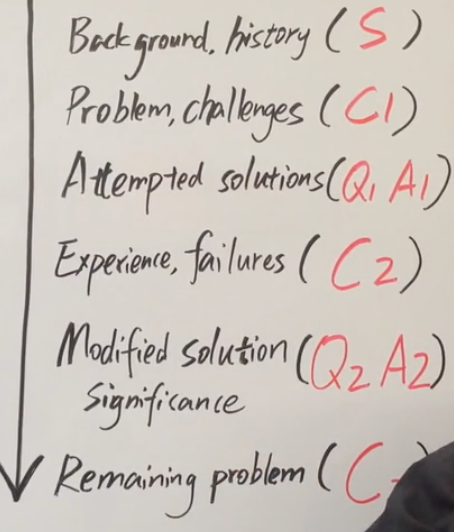 Background, history (S)
Problem, challenges (C1)
Attempted solutions (Q1 A1)
Experience, failures (C2)
Modified solution (Q2 A2)
significance
Remaining problem (C